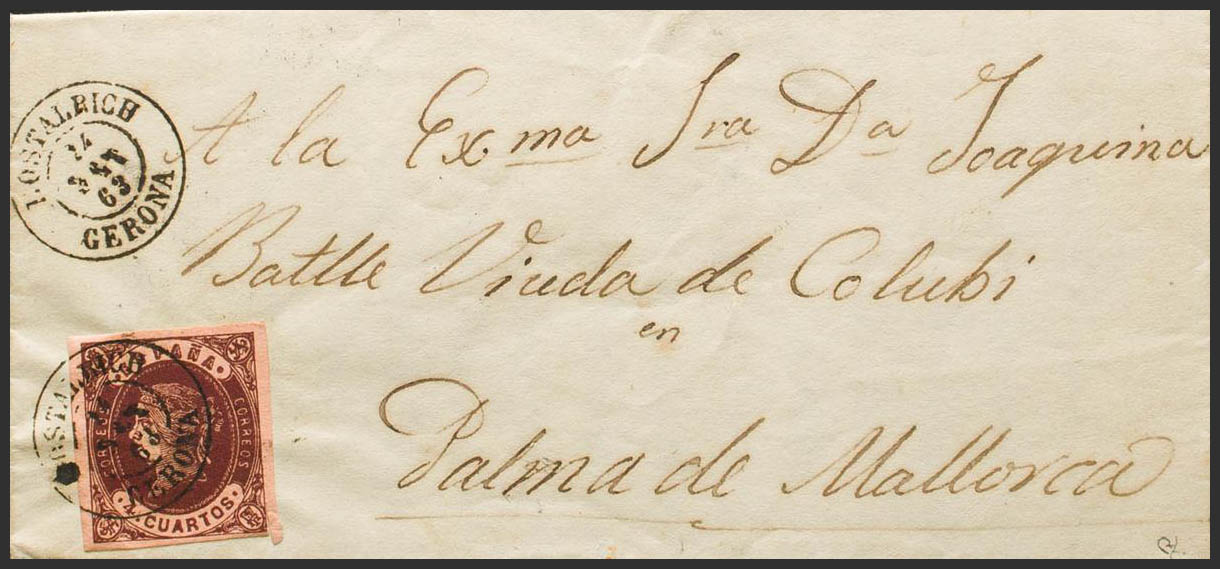 HOSTALRICH
24
SET
63
GERONA
A la Exma Sra Da Joaquina
Batlle Viuda de Colubi
en
Palma de Mallorca
ESPAÑA
CORREOS
CORREOS
4 CUARTOS.
HOSTALRICH
GERONA